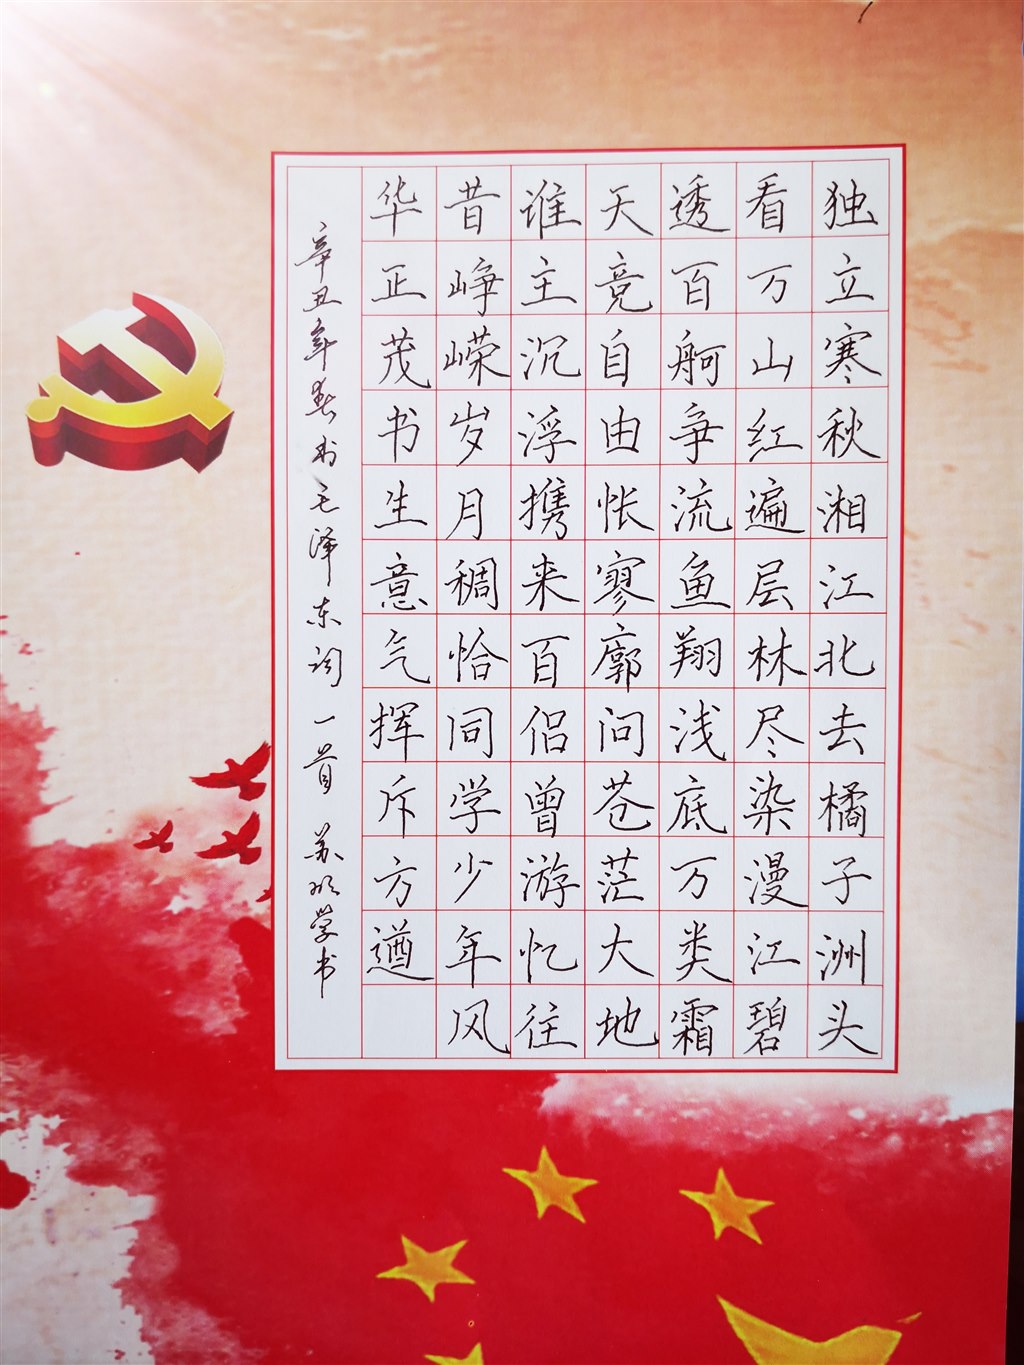 独立寒秋湘江北去橘子洲头
看万山红遍层林尽染漫江碧
透百舸争流鱼翔浅底万类霜
天竞自由怅寥廓问苍茫大地
谁主沉浮携来百侣曾游忆往
昔峥嵘岁月稠恰同学少年风
华正茂书生意气挥斥方遒
辛丑年春书毛泽东词一首 苏 学书